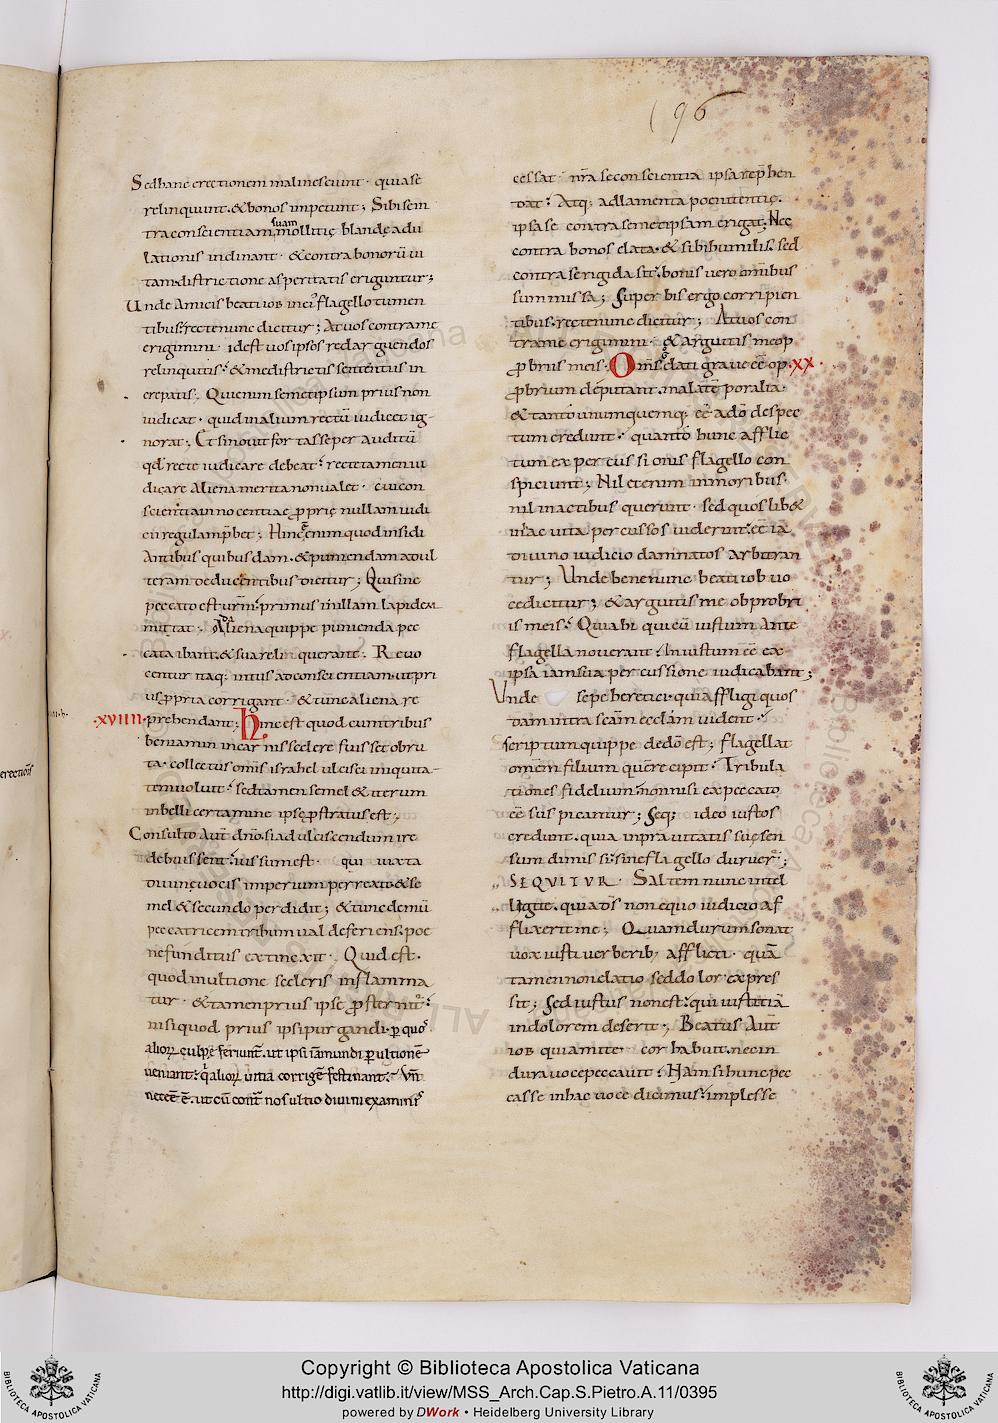 196
Sed hanc erectionem mali nesciunt · quia se
relinquunt · & bonos impetunt ; Sibi si in
tra conscientiam suam mollitię blandę adu
lationis inclinant · & contra bonorū ui
tam districtione asperitatis eriguntur ;
Unde Amicis beati iob
tibus recte nunc dicitur ; At uos contra me
erigimini · id est uos ipsos redarguendos
relinquitis · & me districtis sententiis in
crepatis ; Qui enim semetipsum prius non
iudicat · quid in alium rectū iudicet ig-
norat ; Et si nouit fortasse per auditū
qd recte iudicare debeat · recte tamen iu
dicare aliena merita non ualet · cui con
scientia innocentiae ꝓprię nullam iudi
cii regulam p̄bet ; Hinc ē enim quod insidi
Antibus quibusdam · & puniendam adul
teram deducentibus dicitur ; Qui sine
peccato est urm̄ primus in illam lapidem
mittat · Ad aliena quippe punienda pec
cata ibant · & sua relinquerant · Reuo
centur itaq; intus ad conscientiam · ut pri
us ꝓpria corrigant · & tunc aliena re
·XVIIII· prehendant ; Hinc est quod cum tribus
beniamin in carnis scelere fuisset obru
ta · collectus omīs israhel ulcisci iniquita-
tem uoluit · sed tamen semel & iterum
in belli certamine ipse ꝓstratus est ;
Consulto aut̄ dn̄o si ad ulciscendum ire
debuissent · iussum est · qui iuxta
diuinę uocis imperium perrexit & se
mel & secundo perdidit ; & tunc demū
peccatricem tribum ualde feriens · poe
ne funditus extinxit · Quid est ·
quod in ultione sceleris inflamma
tur · & tamen prius ipse ꝓsternit̄
nisi quod prius ipsi purgandi
aliorꝝ culpę feriunt̄ · ut ipsi iam mundi ꝑ ultionē
ueniant · q̄ aliorꝝ uitia corrigē festinant · Vn̄
necēē ē · ut cū
cessat · nr̄a se conscientia ipsa rep̄hen
dat · Atq; ad lamenta poenitentię ·
ipsa se contra semetipsam erigat ; Nec
contra bonos elata · & sibi humilis · sed
contra se rigida sit · bonis uero omnibus
summissa ; Super his ergo corripien
tibus recte nunc dicitur ; At uos con
tra me erigimini · & arguitis me op
ꝓbriis meis · Omīs elati graue ēē op · XX ·
ꝓbrium deputant · mala tēporalia ·
& tanto unumquemq; ēē a dō despec
tum credunt · quanto hunc afflic
tum ex percussionis flagello con
spiciunt ; Nil etenim in moribus ·
nil in actibus querunt · sed quoslib&
in hac uita percussos uiderint · ēē iā
diuino iudicio damnatos arbitran
tur ; Unde bene nunc beati iob uo
ce dicitur ; & arguitis me obprobri
is meis · Quia hi qui eū iustum ante
flagella nouerant · Iniustum ēē ex
ipsa iam sua percussione iudicabant ;
Unde sepe heretici · quia affligi quos
dam intra scām ecclām uident ·
scriptum quippe de dō est ; flagellat
omēm filium quē recipit · Tribula
tiones fidelium · non nisi ex peccato
ēē suspicantur ; Seq; ideo iustos
credunt · quia in prauitatis suę sen
sum dimissi · sine flagello
SEQUITUR · Saltem nunc intel
ligite · quia ds non equo iudicio af
flixerit me ; Quam durum sonat
uox iusti uerberib; afflicti · quā
tamen non elatio sed dolor expres
sit ; Sed iustus non est · qui iustitiā
in dolorem deserit ; Beatus Aut̄
iob quia mite cor habuit · nec in
dura uoce peccauit ; Nam si hunc pec
casse in hac uoce dicimus · implesse
Copyright © Biblioteca Apostolica Vaticana
http://digi.vatlib.it/view/MSS_Arch.Cap.S.Pietro.A.11/0395
powered by DWork • Heidelberg University Library
BIBLIOTECA APOSTOLICA VATICANA
BIBLIOTECA APOSTOLICA VATICANA